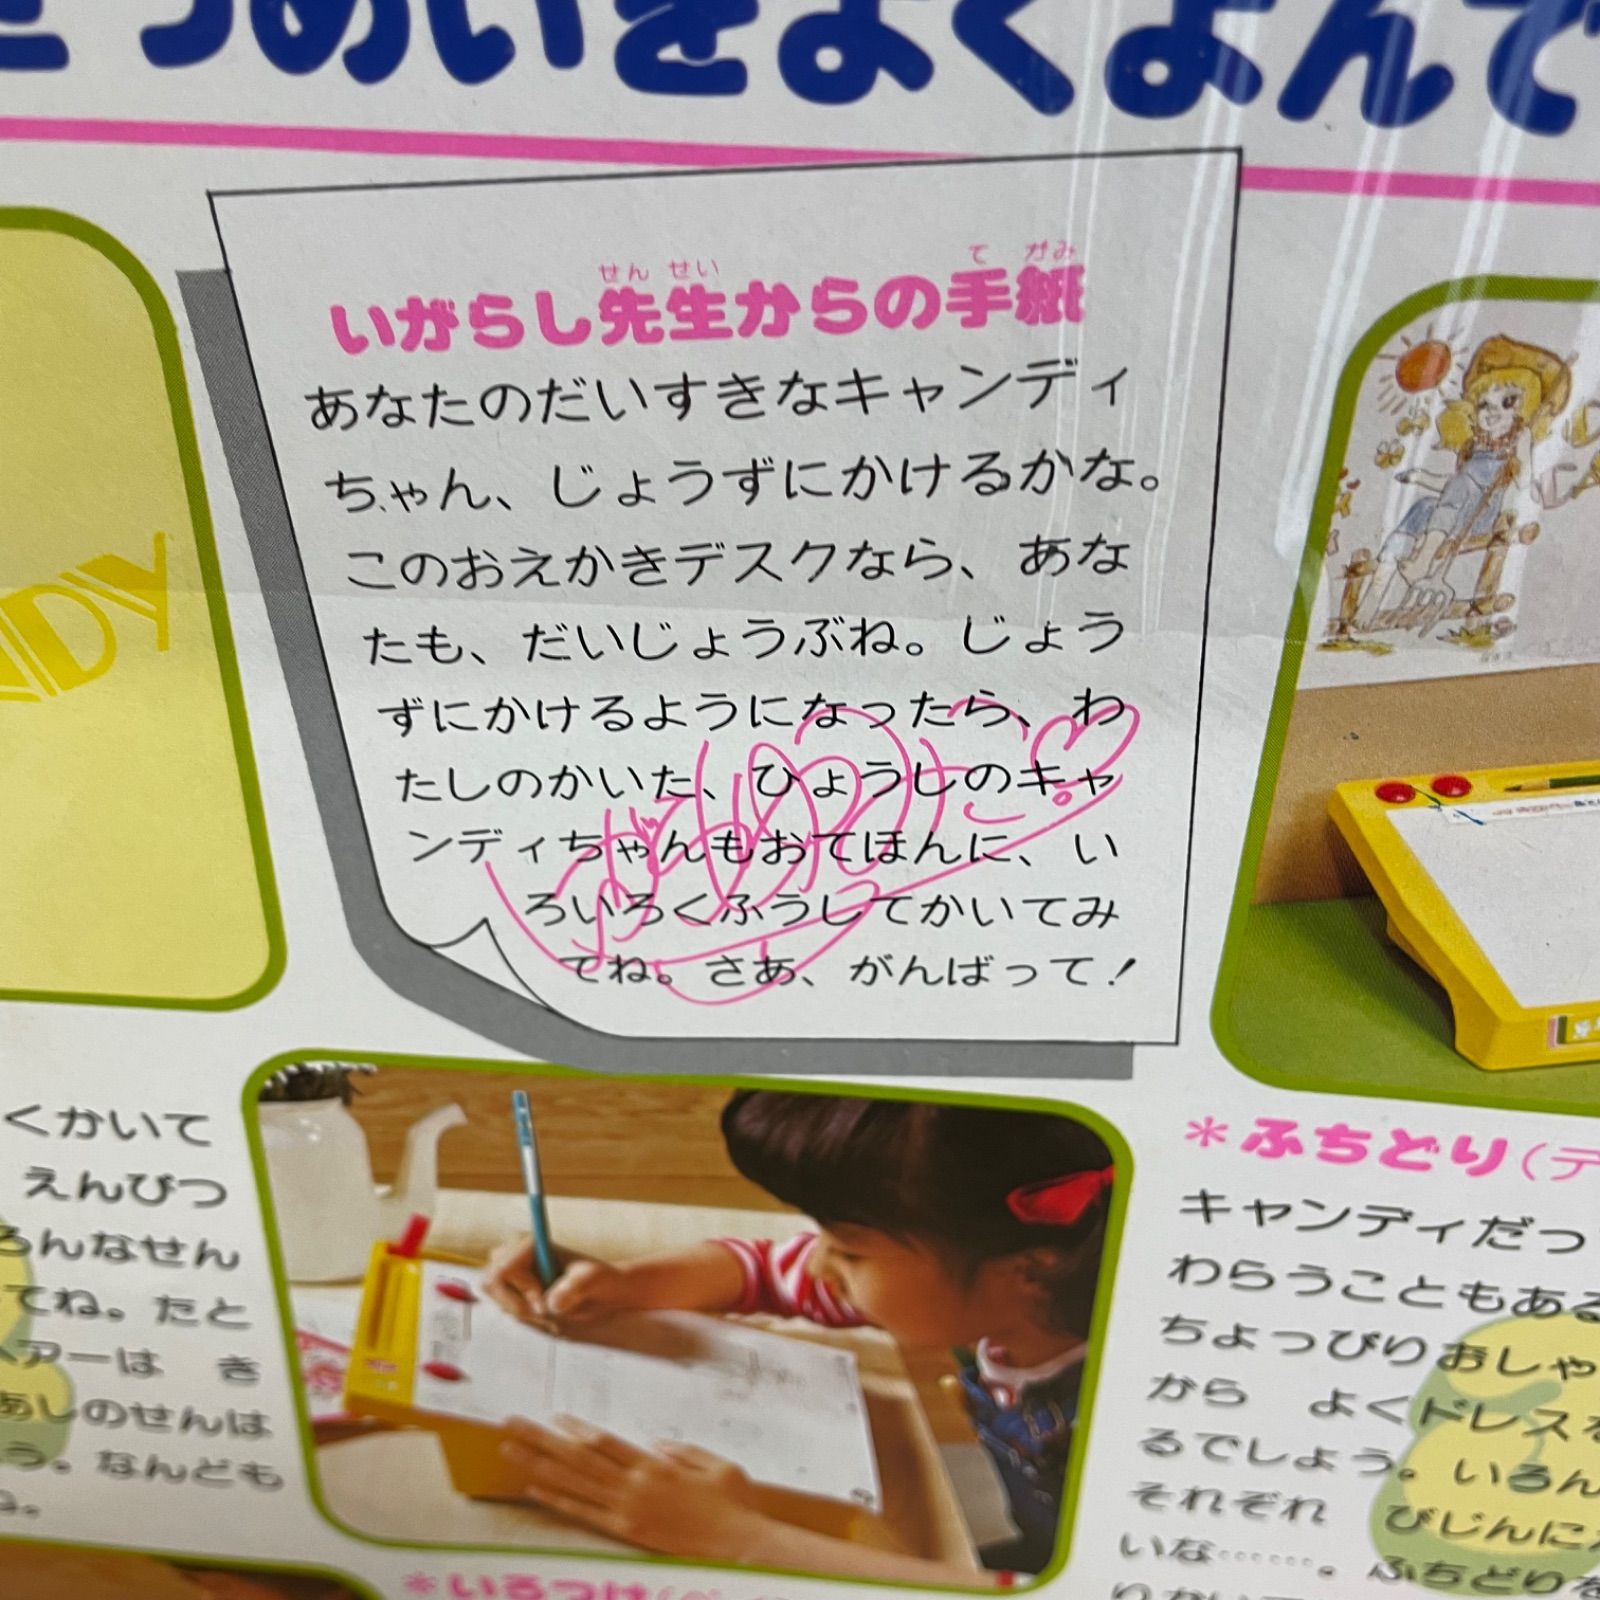 つめいをよくよんで
いがらし先生からの手紙
せん せい て がみ
あなたのだいすきなキャンディ
ちゃん、じょうずにかけるかな。
このおえかきデスクなら、あな
たも、だいじょうぶね。じょう
ずにかけるようになったら、わ
たしのかいた、ひょうしのキャ
ンディちゃんもおてほんに、い
ろいろくふうしてかいてみ
てね。さあ、がんばって！
NDY
くかいて
えんぴつ
ろんなせん
てね。たと
ヘアーは き
あしのせんは
う。なんども
＊ふちどり（デ
キャンディだっ
わらうこともある
ちょっぴりおしゃ
から よくドレスを
るでしょう。いろん
それぞれ びじんに
いな……。ふちどりを
＊いろつけ